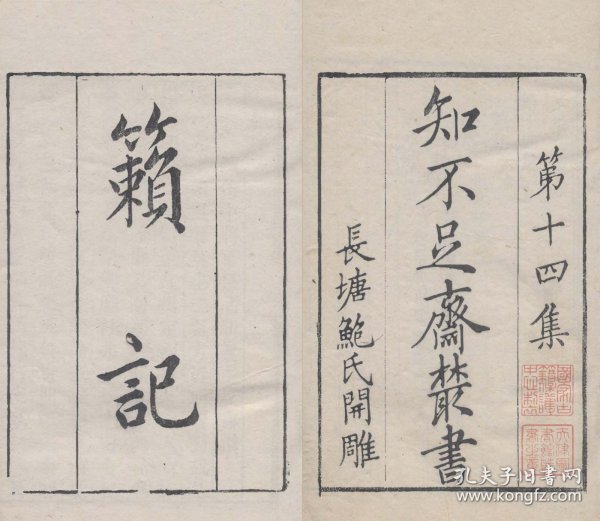 第十四集
知不足齋叢書
長塘鮑氏開雕
籟記
孔夫子旧书网
www.kongfz.com